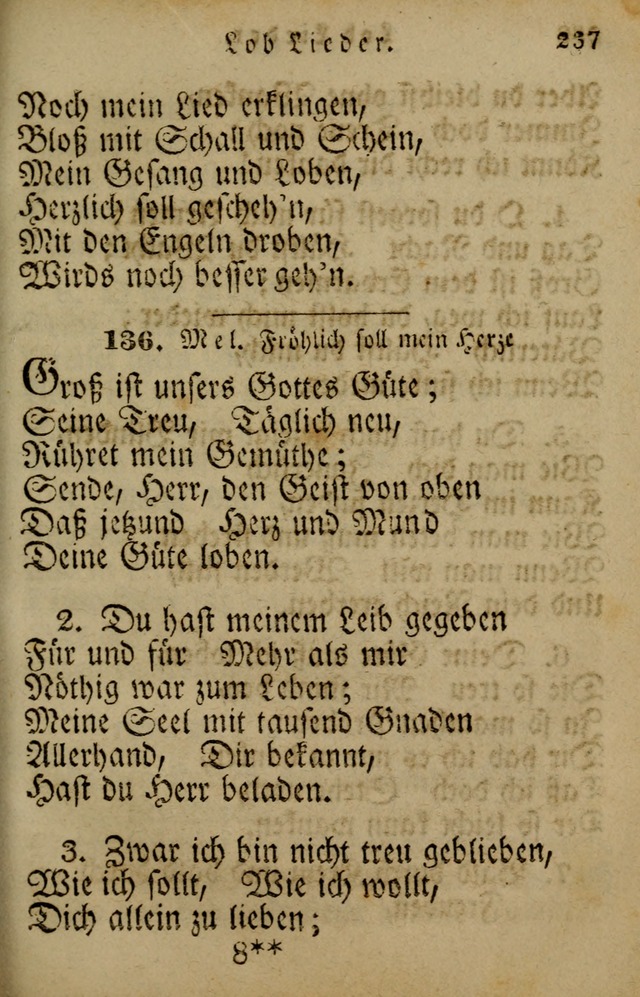 Lob Lieder. 237
Noch mein Lied erklingen,
Bloß mit Schall und Schein,
Mein Gesang und Loben,
Herzlich soll gescheh’n,
Mit den Engeln droben,
Wirds noch besser geh’n.
136. Mel. Fröhlich soll mein Herze
Groß ist unsers Gottes Güte;
Seine Treu, Täglich neu,
Rühret mein Gemüthe;
Sende, Herr, den Geist von oben
Daß jetzund Herz und Mund
Deine Güte loben.
2. Du hast meinem Leib gegeben
Für und für Mehr als mir
Nöthig war zum Leben;
Meine Seel mit tausend Gnaden
Allerhand, Dir bekannt,
Hast du Herr beladen.
3. Zwar ich bin nicht treu geblieben,
Wie ich sollt, Wie ich wollt,
Dich allein zu lieben;
8**